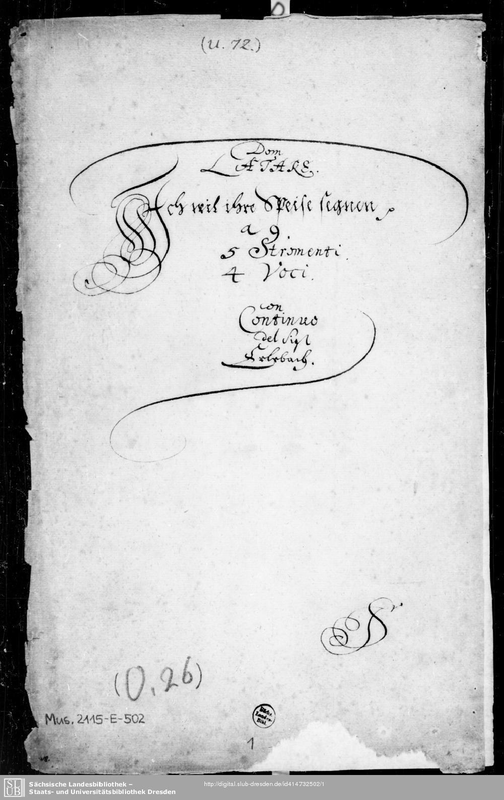 (U. 72.)
Dom
LÆTARE.
Ich wil ihre Speise segnen
a 9.
5 Stromenti.
4 Voci.
con
Continuo
del Sigl
Erlebach.
(U. 26)
Mus. 2115-E-502
Sächs.
Landes-
Bibl.
1
SLUB
Sächsische Landesbibliothek –
Staats- und Universitätsbibliothek Dresden
http://digital.slub-dresden.de/id414732502/1